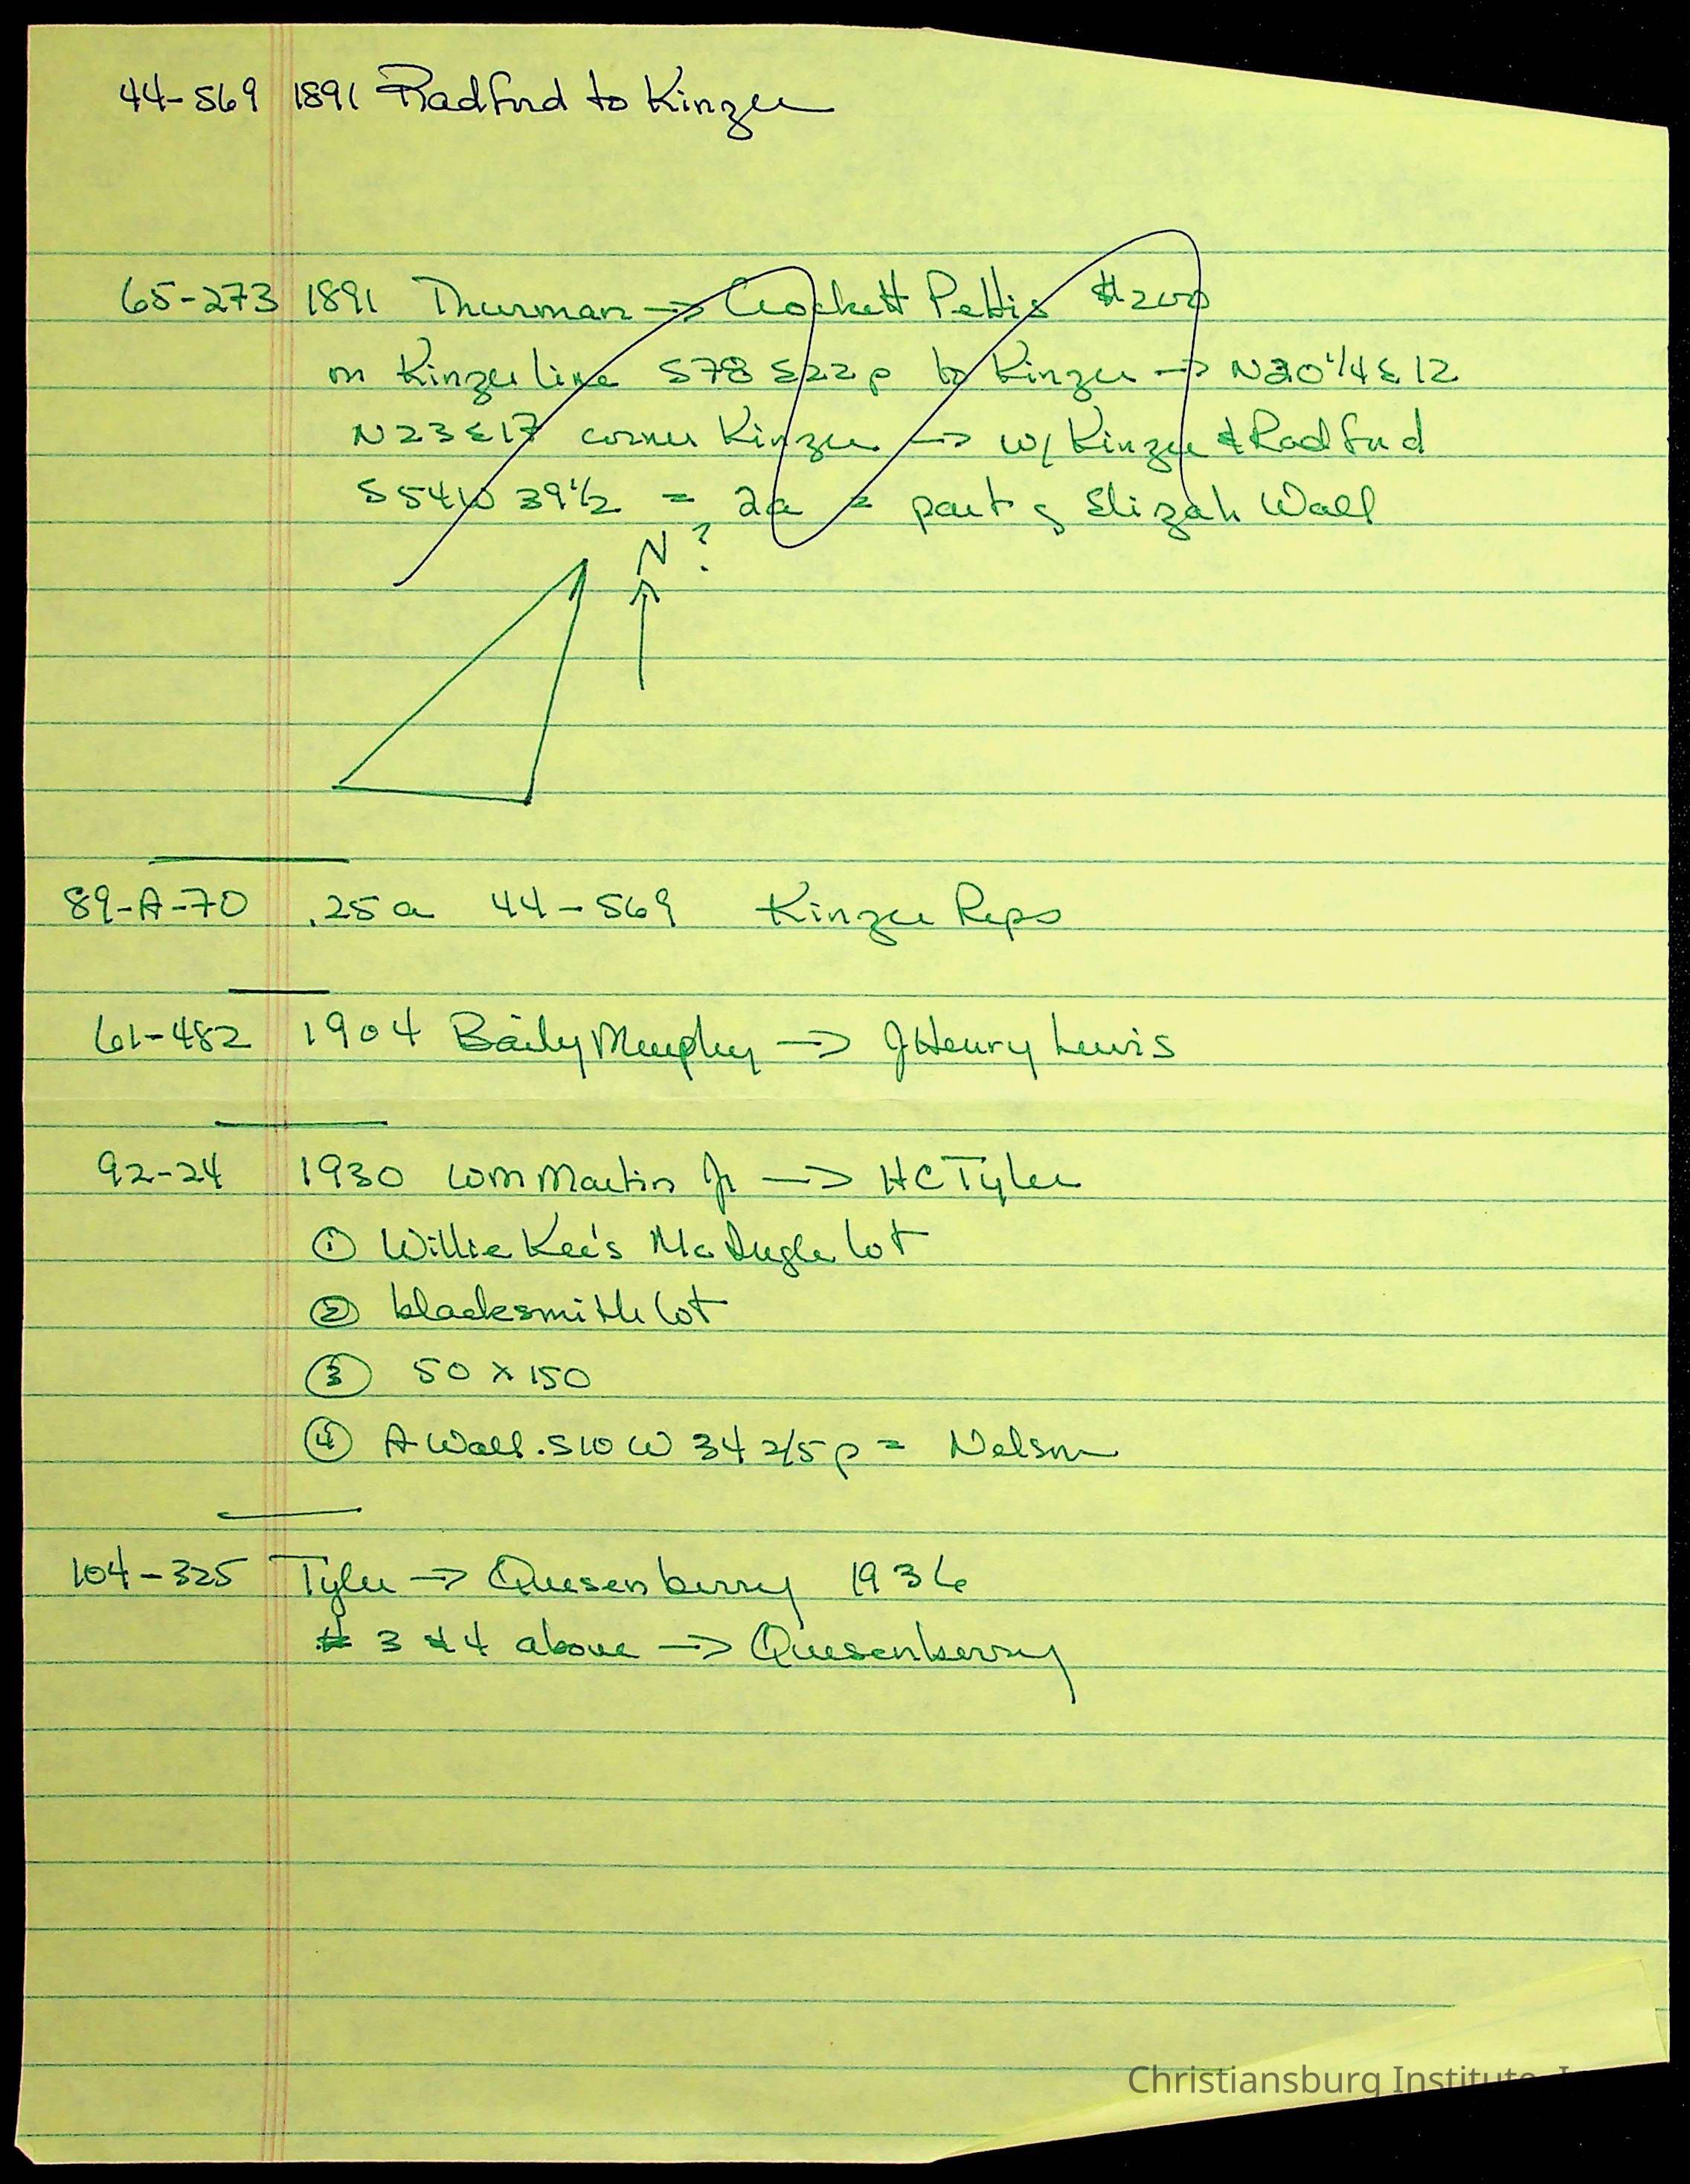 44-569 1891 Radford to Kinzer
65-273 1891 Thurman → Crockett Pettis $200
on Kinzer line S78E22p to Kinzer → N20 1/4 E 12
N23E17 corner Kinzer → w/ Kinzer & Radford
S54W 39 1/2 = 2a = part of Elizah Wall
N?
89-A-70 .25a 44-569 Kinzer Reps
61-482 1904 Baily Murphy → J Henry Lewis
92-24 1930 Wm Martin Jr → HC Tyler
① Willie Kee's lot
② blacksmith lot
③ 50 x 150
④ A Wall. S10W 34 2/5 p = Nelson
104-325 Tyler → Quesenberry 1936
# 3 & 4 above → Quesenberry
Christiansburg Institute, I